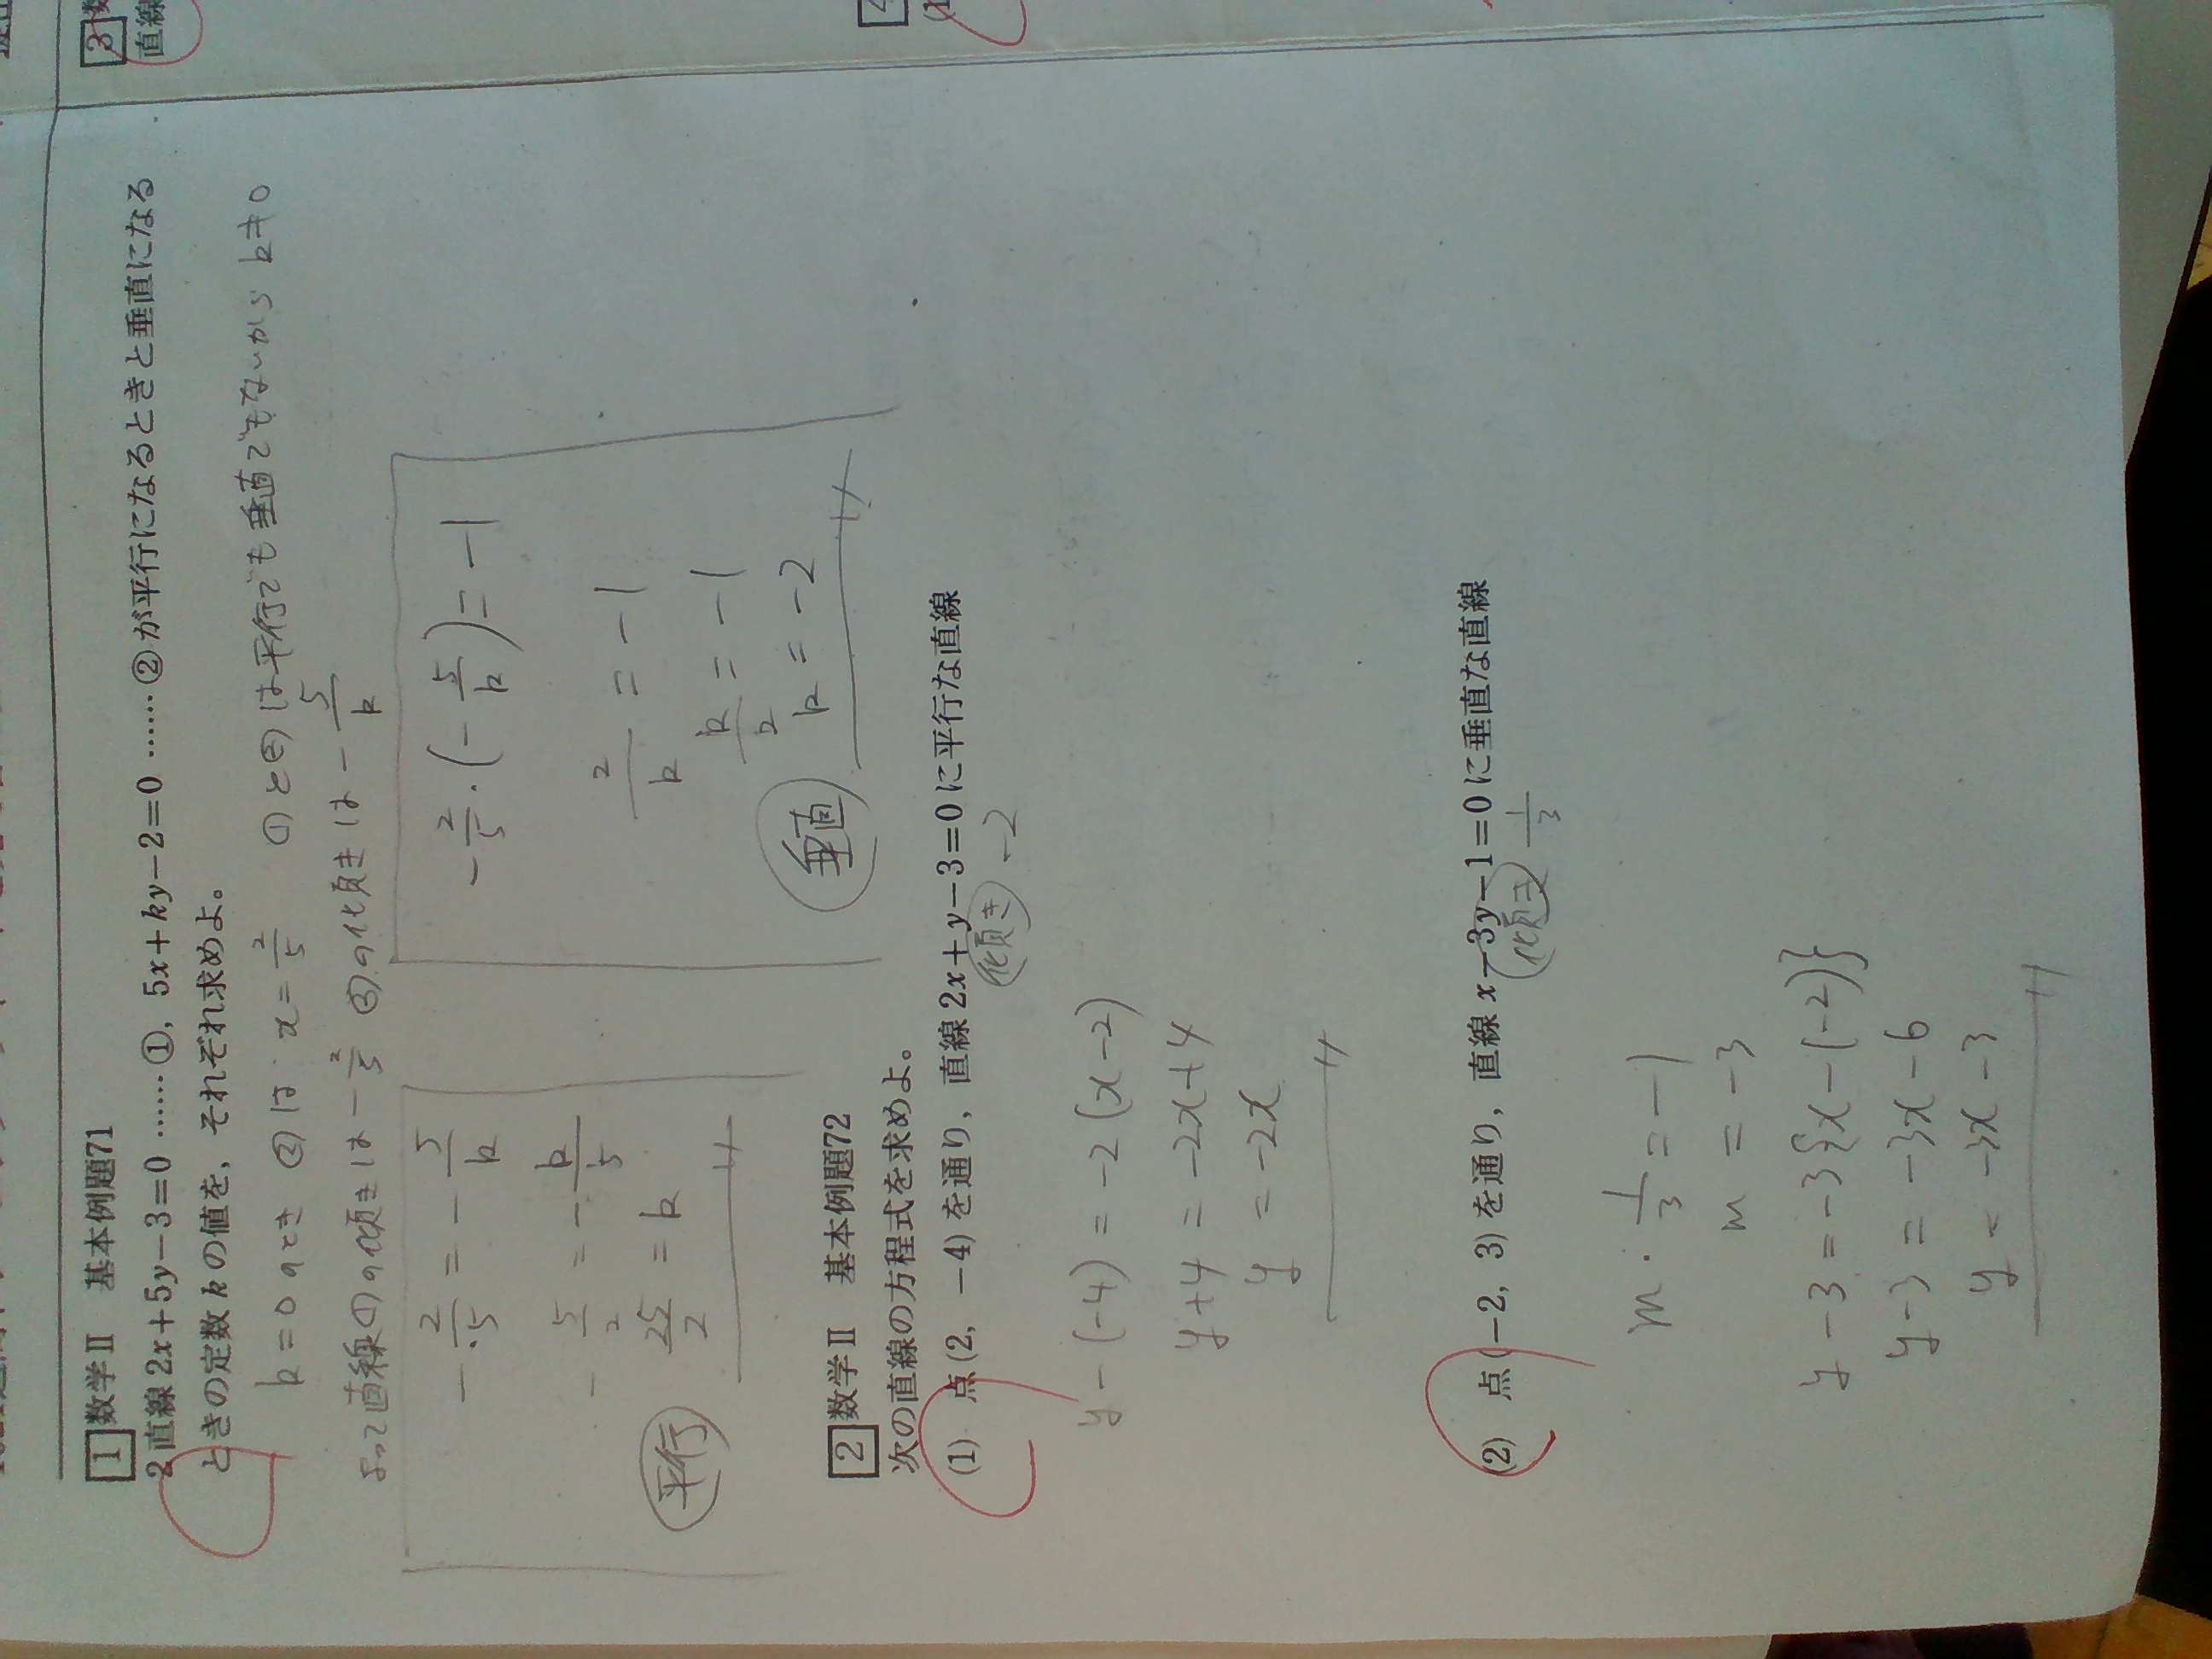 1 数学Ⅱ 基本例題71
2直線 2x+5y−3=0 ……①, 5x+ky−2=0 ……② が平行になるときと垂直になる
ときの定数kの値を, それぞれ求めよ。
k=0のとき ②は x=2/5 ①と②は平行でも垂直でもないから k≠0
よって直線①の傾きは −2/5 ②の傾きは −5/k
−2/5 = −5/k
−5/2 = −k/5
25/2 = k
平行
−2/5・(−5/k) = −1
2/k = −1
k/2 = −1
k = −2
垂直
2 数学Ⅱ 基本例題72
次の直線の方程式を求めよ。
(1) 点(2, −4)を通り, 直線 2x+y−3=0 に平行な直線
傾き −2
y−(−4) = −2(x−2)
y+4 = −2x+4
y = −2x
(2) 点(−2, 3)を通り, 直線 x−3y−1=0 に垂直な直線
傾き 1/3
m・1/3 = −1
m = −3
y−3 = −3{x−(−2)}
y−3 = −3x−6
y = −3x−3
3
直線